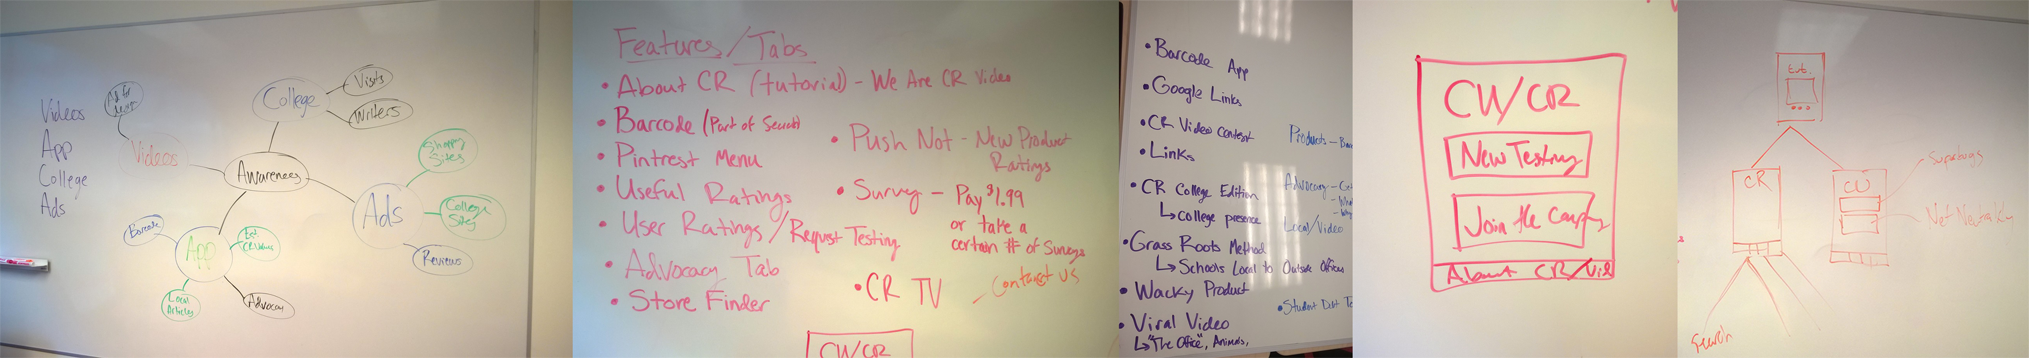 Videos
App
College
Ads
College
Visits
Writers
Videos
Awareness
Ads
Shopping Sites
College Sites
Reviews
App
Barcode
Est. CR Values
Local Articles
Advocacy
Features/Tabs
• About CR (tutorial) - We Are CR Video
• Barcode (Part of Search)
• Pintrest Menu
• Useful Ratings
• User Ratings/Request Testing
• Advocacy Tab
• Store Finder
• Push Not - New Product
Ratings
• Survey - Pay $1.99
or take a
certain # of Surveys
• CR TV
- Contact us
CW/CR
• Barcode App
• Google Links
• CR Video Content
• Links
• CR College Edition
↳ College presence
• Grass Roots Method
↳ Schools Local to Outside Offices
• Wacky Product
• Viral Video
↳ "The Office", Animals,
Products -
Advocacy -
Local/Video
• Student Debt
CW/CR
New Testing
Join the
About CR/Vid
tut.
CR
CU
Superbugs
Net Neutrality
Search